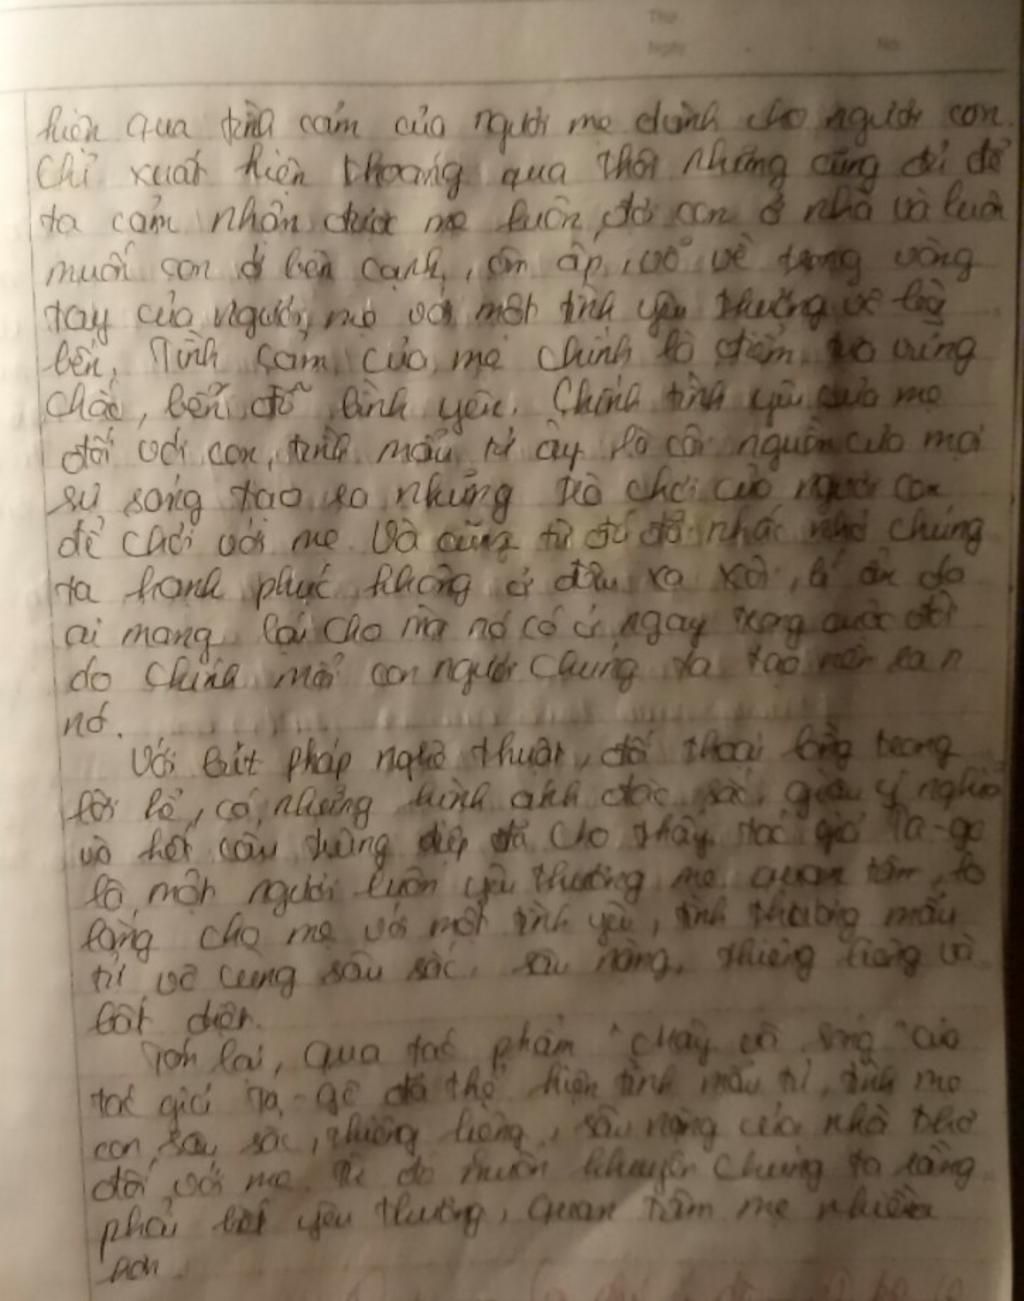 Thứ
Ngày No
hiện qua tình cảm của người mẹ dành cho người con.
Chỉ xuất hiện thoáng qua thôi nhưng cũng đủ để
ta cảm nhận được mẹ luôn đợi con ở nhà và luôn
muốn con ở bên cạnh, ôm ấp, vỗ về trong vòng
tay của người mẹ với một tình yêu thương vô bờ
bến. Tình cảm của mẹ chính là điểm tựa vững
chắc, bến đỗ bình yên. Chính tình yêu của mẹ
đối với con, tình mẫu tử ấy là cội nguồn của mọi
sự sáng tạo ra những trò chơi của người con
để chơi với mẹ. Và cũng từ đó đã nhắc nhở chúng
ta hạnh phúc không ở đâu xa xôi, bí ẩn do
ai mang lại cho mà nó có ở ngay trong cuộc đời
do chính mỗi con người chúng ta tạo nên
nó.
Với bút pháp nghệ thuật, đối thoại lồng trong
lời kể, có những hình ảnh đặc sắc, giàu ý nghĩa
và hết câu đã cho thấy tác giả Ta-go
là một người luôn yêu thương mẹ, quan tâm, lo
lắng cho mẹ với một tình yêu, tình thương mẫu
tử vô cùng sâu sắc, sâu nặng, thiêng liêng và
bất diệt.
Tóm lại, qua tác phẩm "Mây và sóng" của
tác giả Ta-go đã thể hiện tình mẫu tử, tình mẹ
con sâu sắc, thiêng liêng, sâu nặng của nhà thơ
đối với mẹ. Từ đó muốn khuyên chúng ta rằng
phải biết yêu thương, quan tâm mẹ nhiều
hơn.